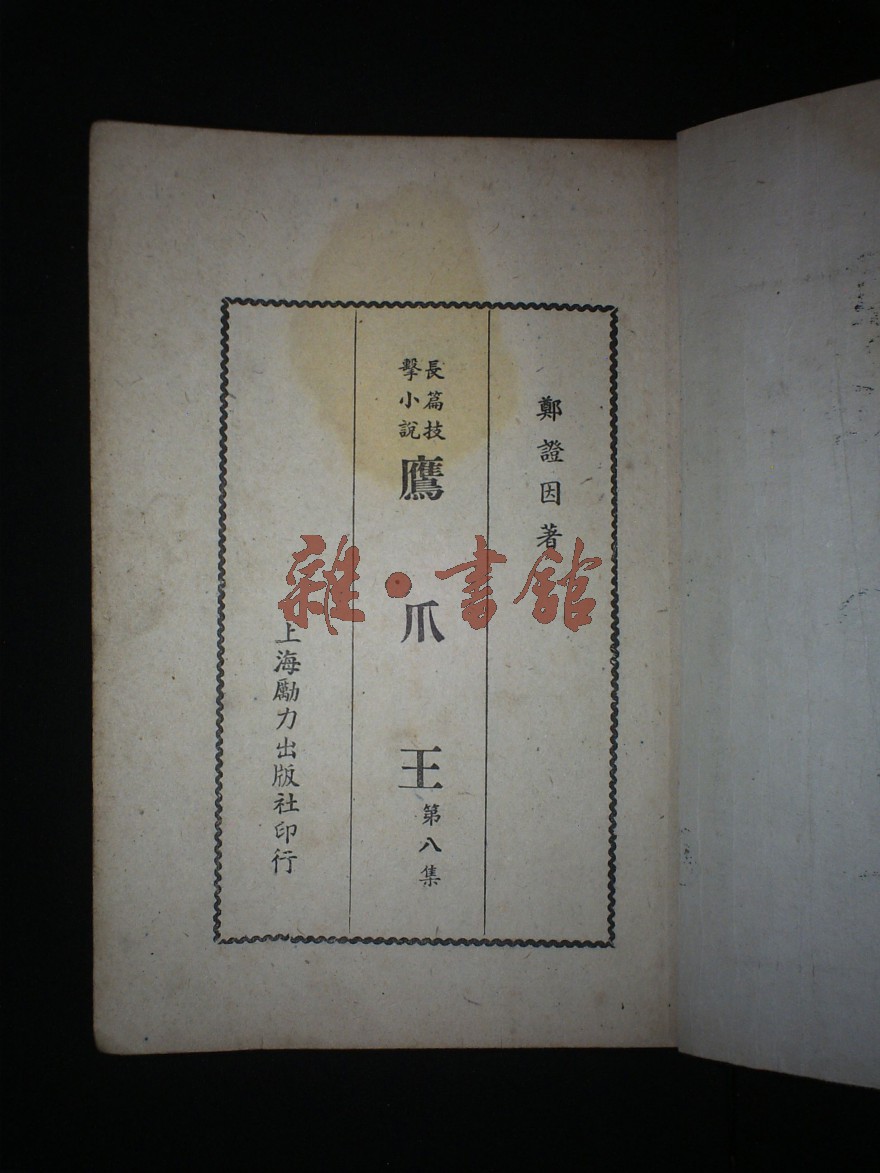 鄭證因著
長篇技
擊小說
鷹爪王
第八集
上海勵力出版社印行
雜·書館